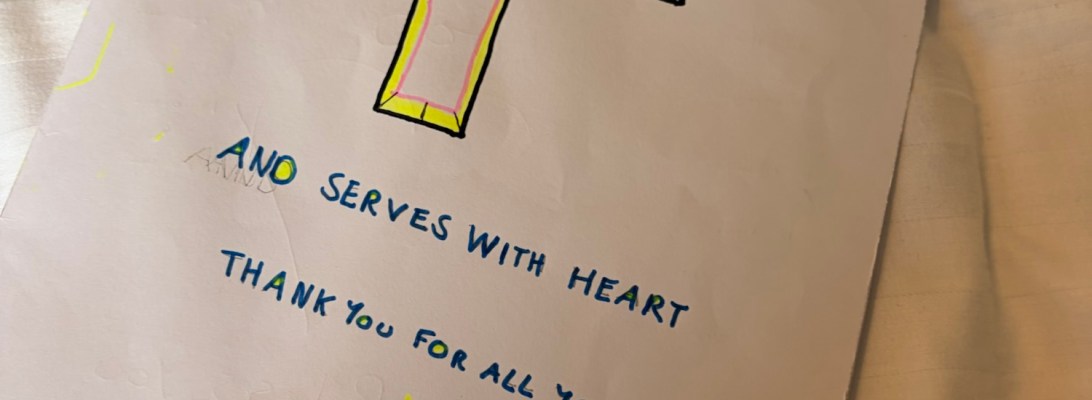 AND SERVES WITH HEART
THANK YOU FOR ALL